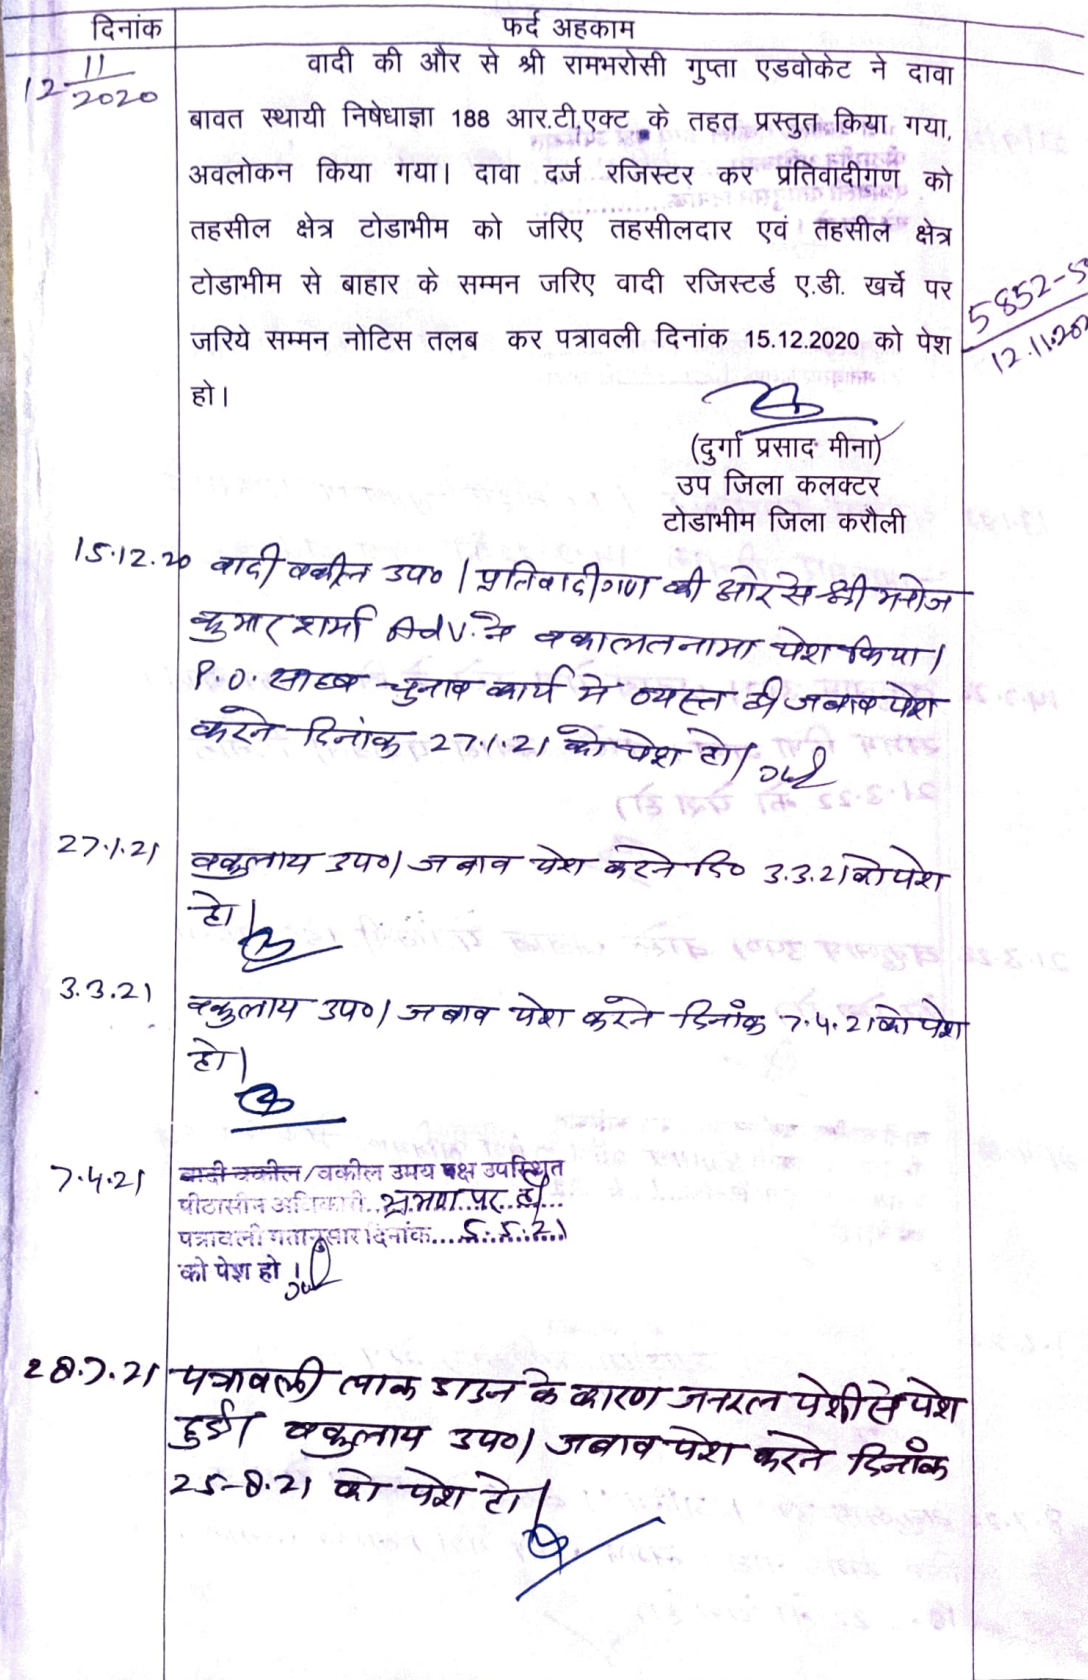 दिनांक
फर्द अहकाम
12-11/2020
वादी की और से श्री रामभरोसी गुप्ता एडवोकेट ने दावा
बावत स्थायी निषेधाज्ञा 188 आर.टी.एक्ट के तहत प्रस्तुत किया गया,
अवलोकन किया गया। दावा दर्ज रजिस्टर कर प्रतिवादीगण को
तहसील क्षेत्र टोडाभीम को जरिए तहसीलदार एवं तहसील क्षेत्र
टोडाभीम से बाहार के सम्मन जरिए वादी रजिस्टर्ड ए.डी. खर्चे पर
जरिये सम्मन नोटिस तलब कर पत्रावली दिनांक 15.12.2020 को पेश
हो।
5852-5
12.11.202
(दुर्गा प्रसाद मीना)
उप जिला कलक्टर
टोडाभीम जिला करौली
15.12.20 वादी वकील उप० | प्रतिवादीगण की ओर से श्री मनोज
कुमार शर्मा Adv. ने वकालतनामा पेश किया |
P.O. साहब चुनाव कार्य मे व्यस्त है जबाब पेश
करने दिनांक 27.1.21 को पेश हो |
27.1.21 वकुलाय उप० | जबाव पेश करने दि० 3.3.21 को पेश
हो |
3.3.21 वकुलाय उप० | जबाव पेश करने दिनांक 7.4.21 को पेश
हो |
7.4.21 वादी वकील/वकील उभय पक्ष उपस्थित
पीठासीन अधिकारी..भ्रमण पर है...
पत्रावली गतानुसार दिनांक....5.5.21
को पेश हो।
28.7.21 पत्रावली लाक डाउन के कारण जनरल पेशी से पेश
हुई। वकुलाय उप० | जबाव पेश करने दिनांक
25-8.21 को पेश हो |